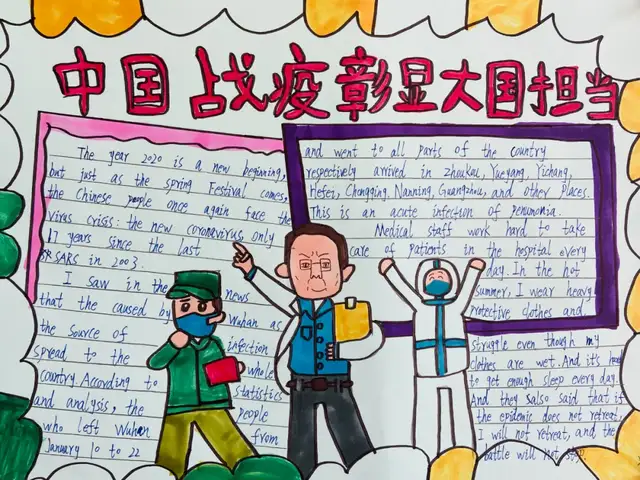 中国战疫彰显大国担当
The year 2020 is a new beginning,
but just as the spring Festival comes,
the Chinese people once again face the
virus crisis: the new coronavirus, only
17 years since the last
SARS in 2003.
I saw in the news
that the caused by Wuhan as
the source of infection
spread, to the whole
country. According to statistics
and analysis, the people
who left Wuhan from
January 10 to 22
and went to all parts of the country
respectively arrived in Zhoukou, Yueyang, Yichang,
Hefei, Chongqing, Nanning, Guangzhou, and other places.
This is an acute infection of penumonia.
Medical staff work hard to take
care of patients in the hospital every
day. In the hot
summer, I wear heavy
protective clothes and
struggle even though my
clothes are wet. And it's
to get enough sleep every day.
And they Salso said that if
the epidemic does not retreat,
I will not retreat, and the
battle will not stop.